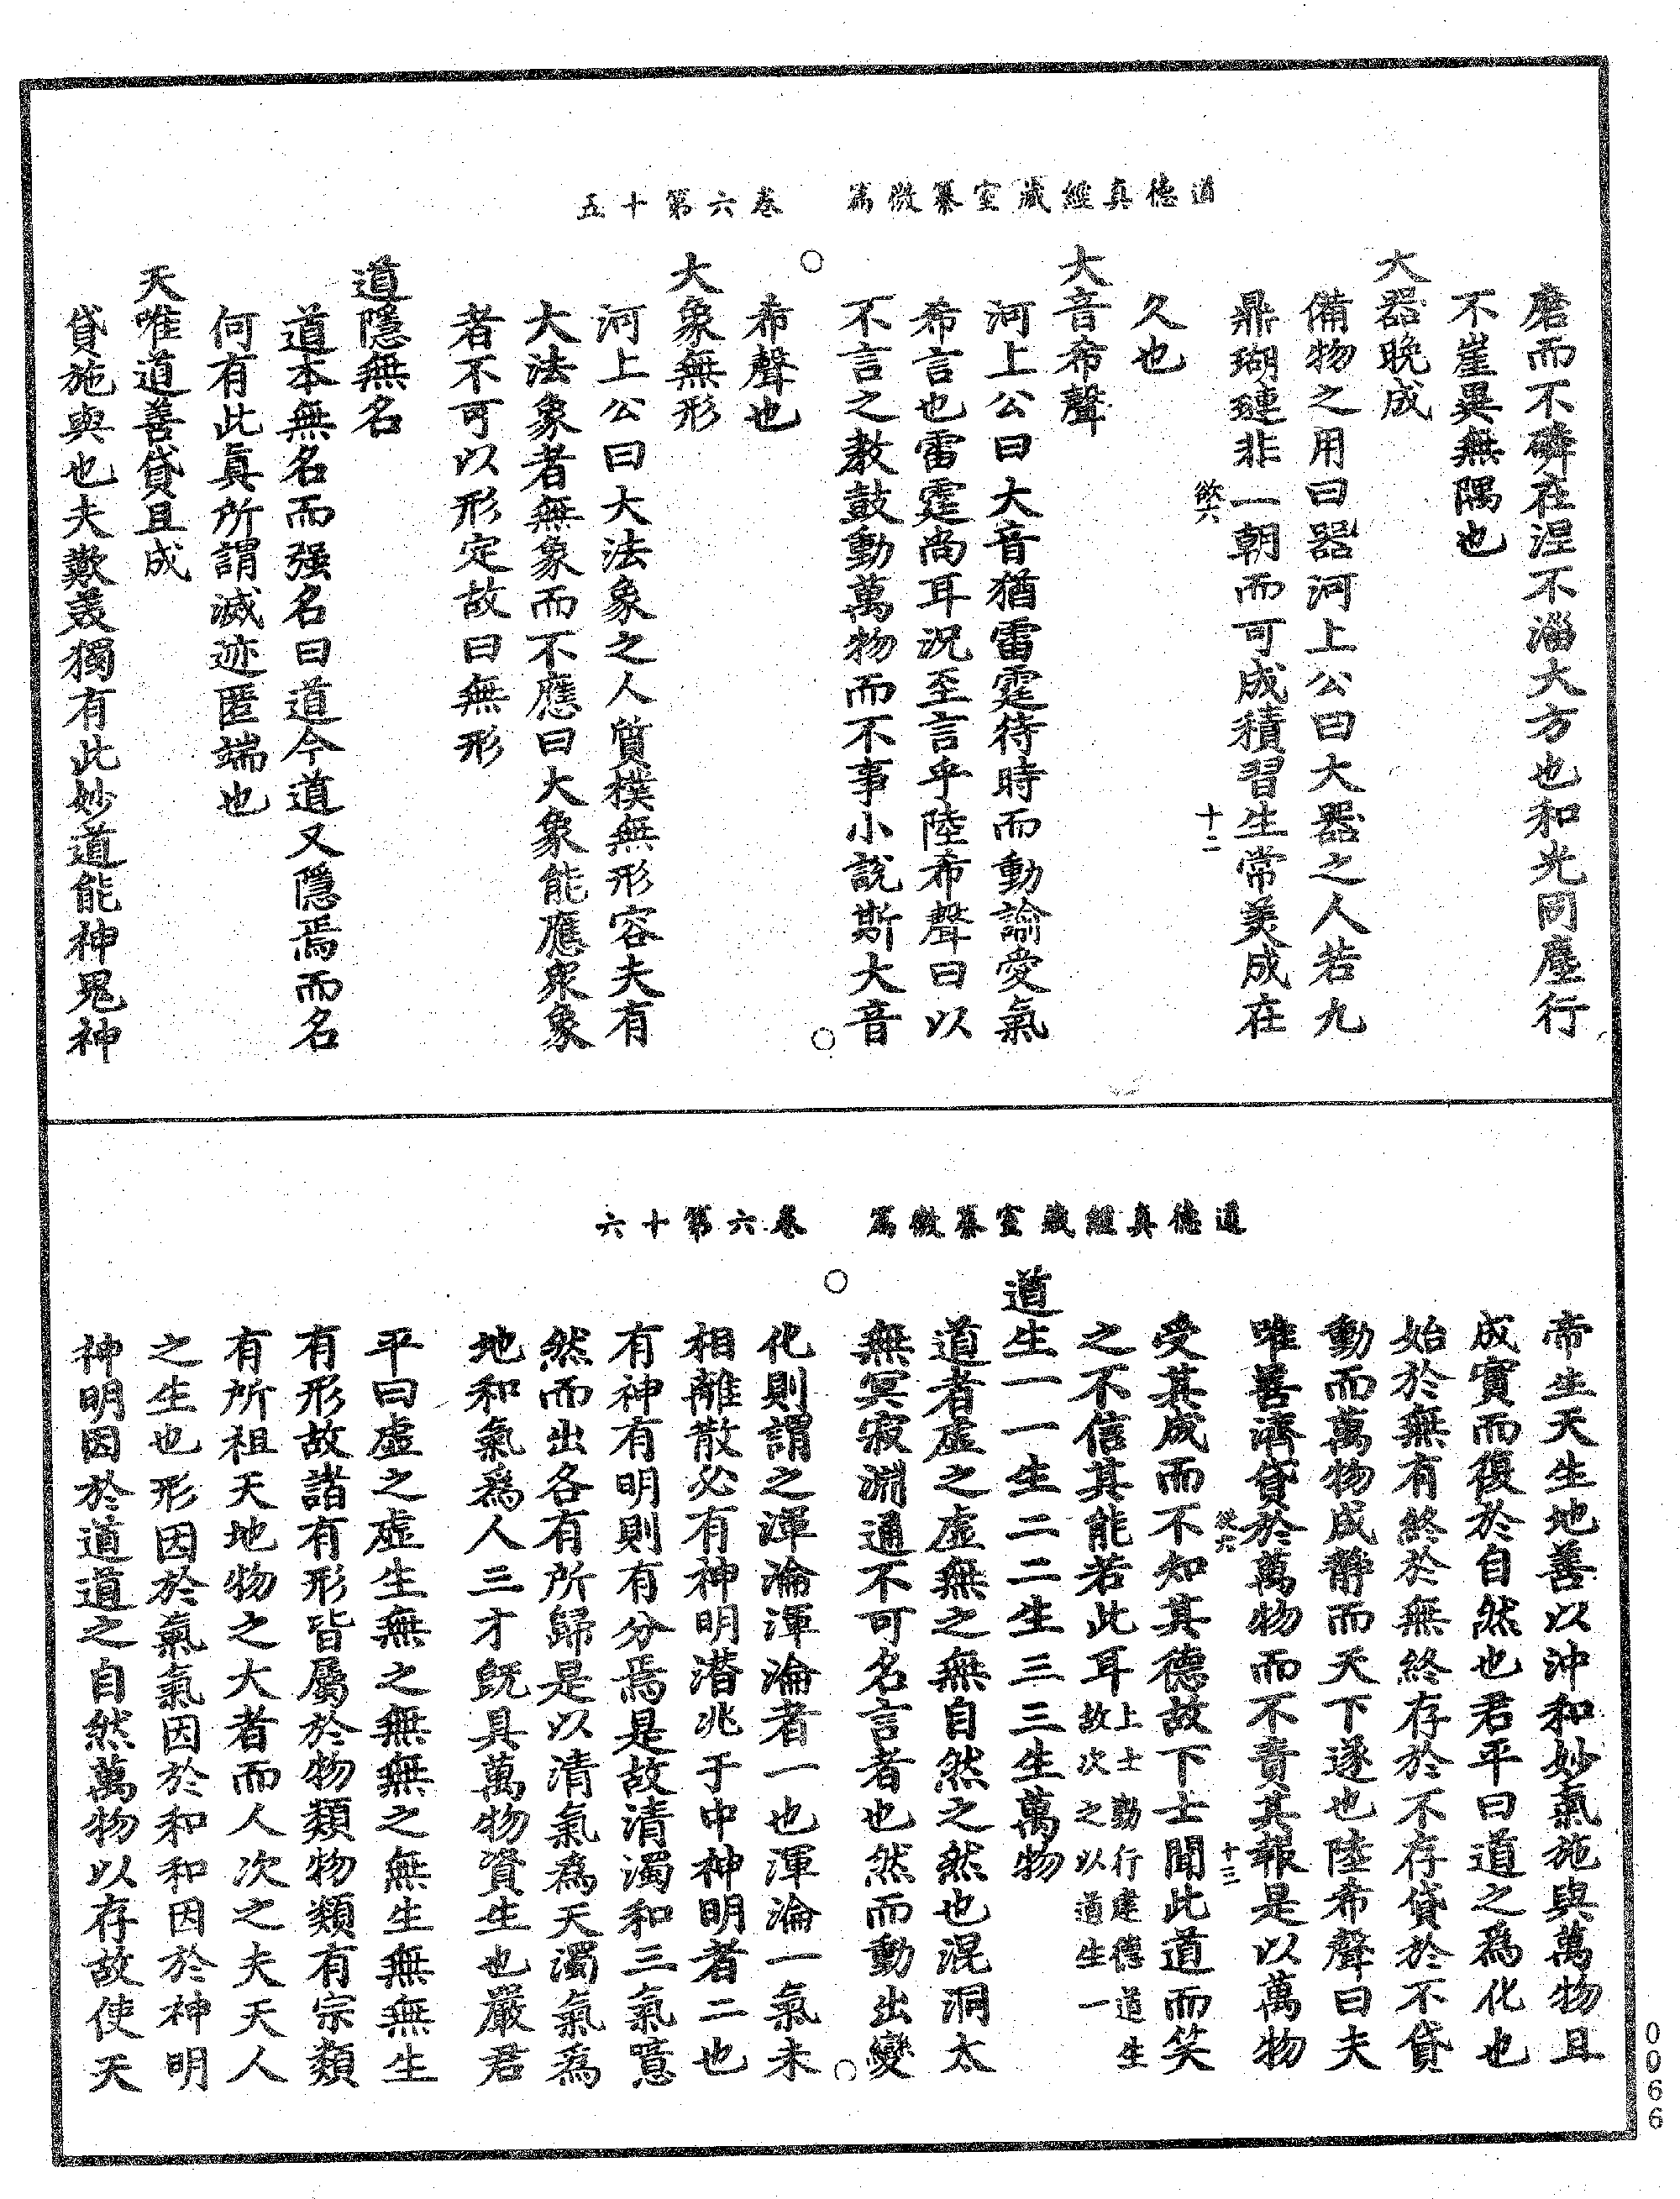 道德真經藏室纂微篇　卷六第十五
磨而不磷在涅不淄大方也和光同塵行
不崖異無隅也
大器晚成
備物之用曰器河上公曰大器之人若九
鼎瑚璉非一朝而可成積習生常美成在
十二
久也
大音希聲
河上公曰大音猶雷霆待時而動諭愛氣
希言也雷霆尚耳況至言乎陸希聲曰以
不言之教鼓動萬物而不事小說斯大音
希聲也
大象無形
河上公曰大法象之人質樸無形容夫有
大法象者無象而不應曰大象能應衆象
者不可以形定故曰無形
道隱無名
道本無名而强名曰道今道又隱焉而名
何有此眞所謂滅迹匿端也
天唯道善貸且成
貸施與也夫歎羙獨有此妙道能神鬼神
道德真經藏室纂微篇　卷六第十六
帝生天生地善以沖和妙氣施與萬物且
成實而復於自然也君平曰道之爲化也
始於無有終於無終存於不存貸於不貸
動而萬物成靜而天下遂也陸希聲曰夫
唯善濟貸於萬物而不責其報是以萬物
十三
受其成而不知其德故下士聞此道而笑
之不信其能若此耳上士勤行建德道生
故次之以道生一
道生一一生二二生三三生萬物
道者虛之虛無之無自然之然也混洞太
無冥寂淵通不可名言者也然而動出變
化則謂之渾淪渾淪者一也渾淪一氣未
相離散必有神明潛兆于中神明者二也
有神有明則有分焉是故清濁和三氣噫
然而出各有所歸是以清氣爲天濁氣爲
地和氣爲人三才旣具萬物資生也嚴君
平曰虛之虛生無之無無之無生無無生
有形故諸有形皆屬於物類物類有宗類
有所祖天地物之大者而人次之夫天人
之生也形因於氣氣因於和和因於神明
神明因於道道之自然萬物以存故使天
0066